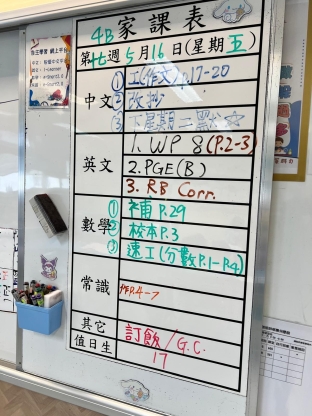 4B 家課表
第十七週 5月16日(星期五)
中文
① 工(作文)p.17-20
② 改抄
③ 下星期二默文
英文
1. WP 8 (P.2-3)
2. PGE(B)
3. RB Corr.
數學
① 補 P.29
② 校本 P.3
③ 速工(分數P.1-P.4)
常識
作P.4-7
其它
值日生
訂飲/G.C.
17